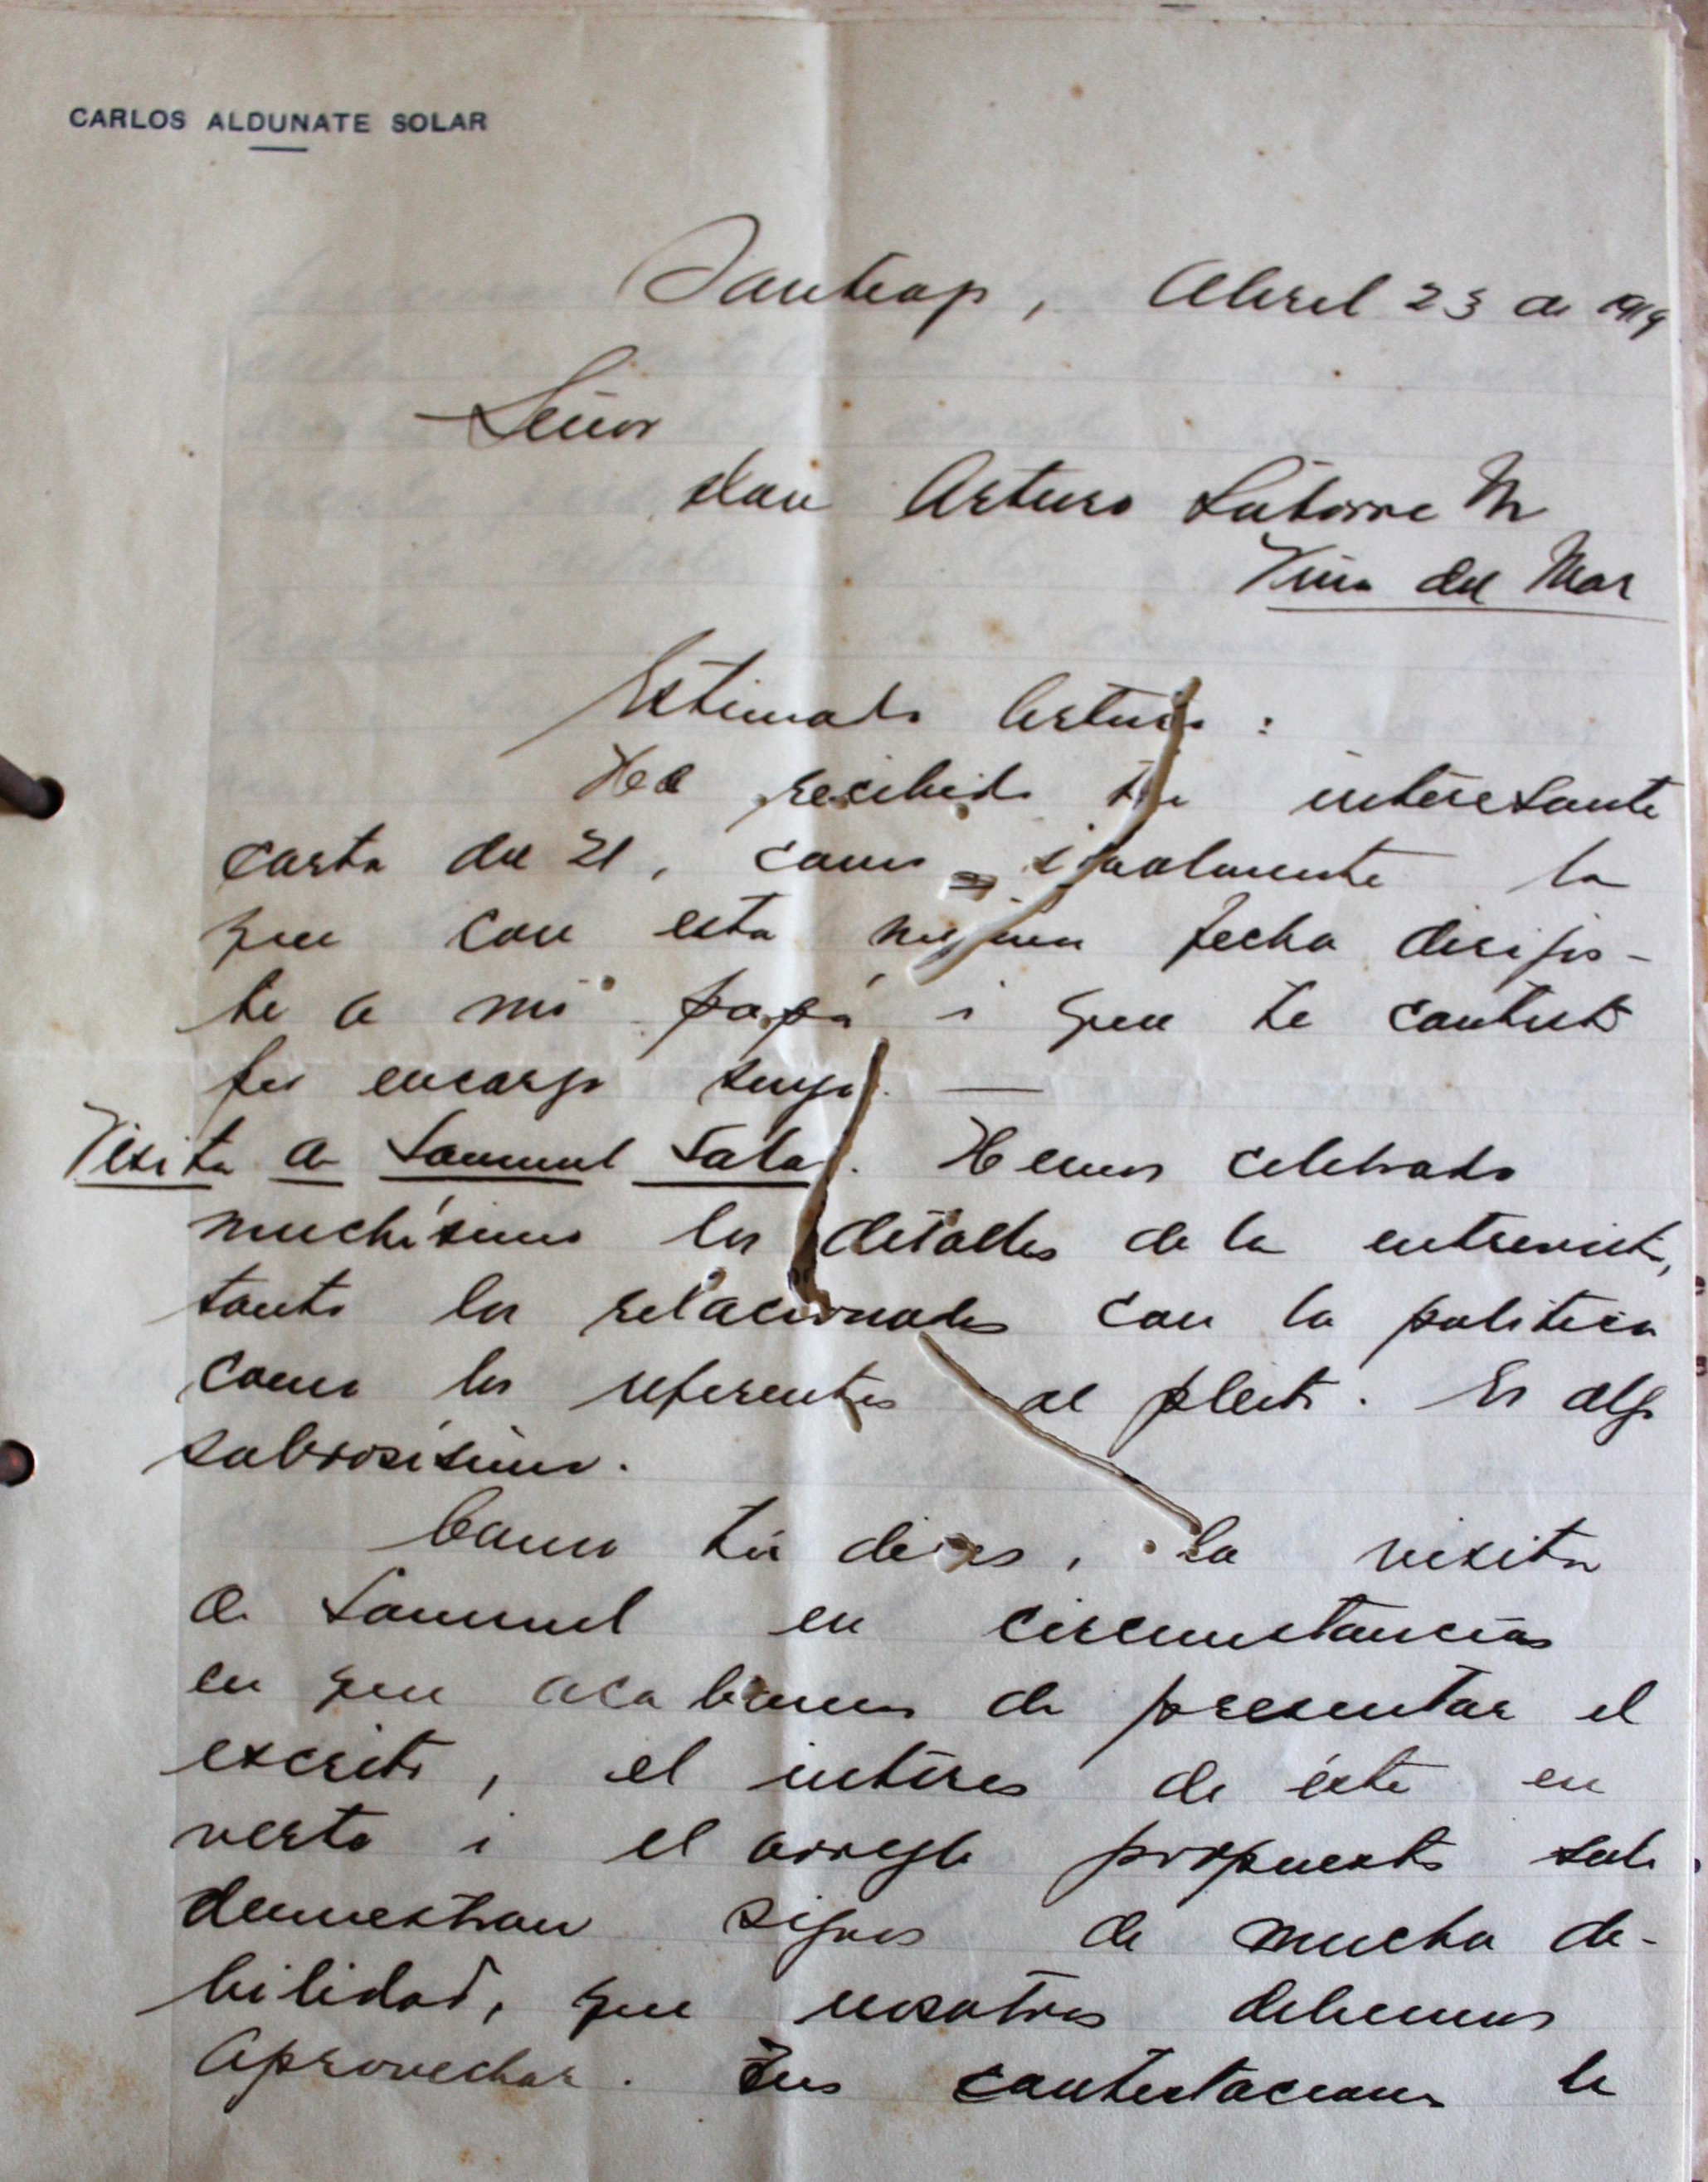 CARLOS ALDUNATE SOLAR
Santiago, Abril 23 de 1919
Señor
don Arturo Latorre M
Viña del Mar
Estimado Arturo:
He recibido tu interesante
carta del 21, como igualmente la
que con esta misma fecha dirijis-
te a mi papá i que te contesto
por encargo suyo. —
Visita de Samuel Salas. Hemos celebrado
muchísimo los detalles de la entrevista,
tanto los relacionados con la politica
como los referentes al pleito. Es algo
sabrosísimo.
Como tú dices, la visita
de Samuel en circunstancias
en que acabamos de presentar el
escrito, el interes de éste en
verte i el arreglo propuesto
demuestran signos de mucha de-
bilidad, que nosotros debemos
aprovechar. Tus contestaciones